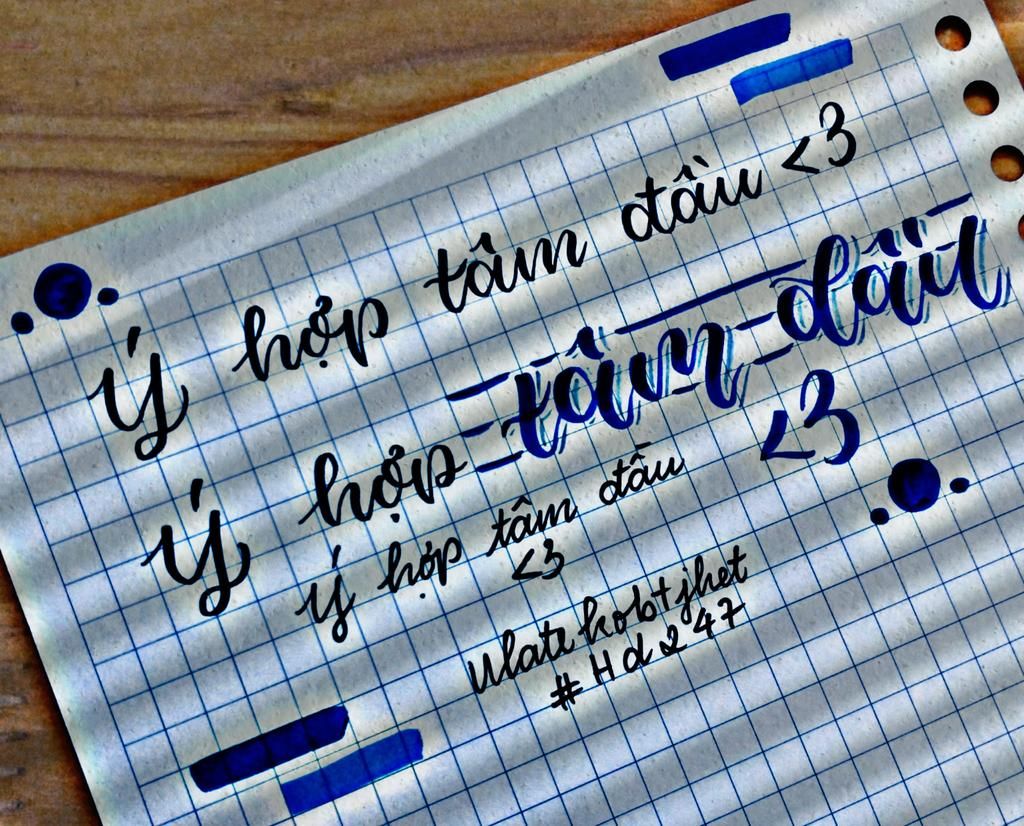 Ý hợp tâm đầu <3
Ý hợp tâm đầu
<3
Ý hợp tâm đầu
<3
Ulatikobtjhet
#Hd247